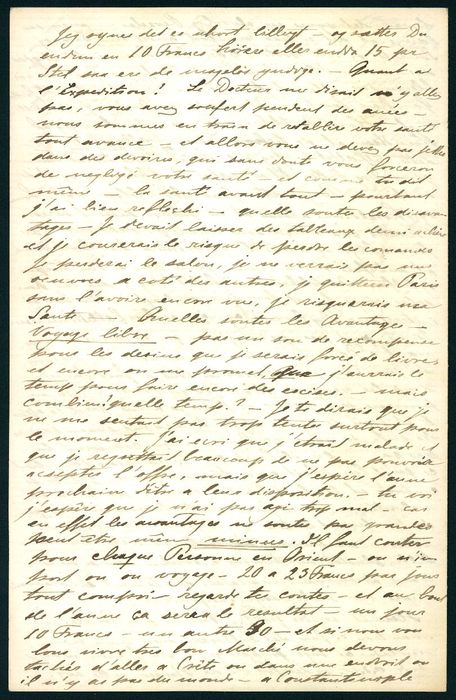 Jeg synes det er uhort billigt — og sattes Du
endnu en 10 Francs höiere eller endda 15 pr
Stk saa ere de magelös yndige. — Quant a
l'Expedition! Le Docteur me disait n'y allez
pas, vous avez soufert pendent des anées —
nous sommes en train de retablire votre santé
tout avance — et allors vous ne devez pas
dans des devoirs, qui sans dout vous forceron
de neglegé votre santé et comme tu dit
même — la santé avant tout — pourtant
j'ai bien reflechi — quelle sontes les disavan
tages — Je devrait laisser des tableaux demi
et je couserais le risque de perdre les comandes
Je perderai le salon, je ne verrais pas mes
oeuvres a coté des autres, je quitterai Paris
sans l'avoire encore vue, je risquerais ma
Santé. Quelles sontes les Avantages —
Voyage libre — pas un sou de recompense
pour les desins que je serais forcé de livrer
et encore on me promet, que j'aurais le
temp pour faire encore des escises. — mais
combien quelle temp? — Je te dirais que je
ne me sentait pas trop tentée surtout pour
le moment. J'ai ecri que j'etrait malade et
que je regrettait beaucoup de ne pas pouvoir
acseptes l'offre, mais que j'espère l'anne
prochain d'être a leur disposition. — tu voi
j'espère que je n'ai pas agi trop mal — car
en effet les avantages ne sonte pas grandes
peut être même minus. Il faut conter
pour chaque Personne en Orient — ou n'im
port ou on voyage — 20 a 25 Francs par jour
tout compri — regarde te contes — et au bout
de l'anne ça seras le resultat — un jour
10 Francs — un autre 30 — et si nous vou
lons vivre tres bon Marché nous devons
tachés d'alles a Crête ou dans une endroit ou
il n'y as pas du monde — a Constantinople